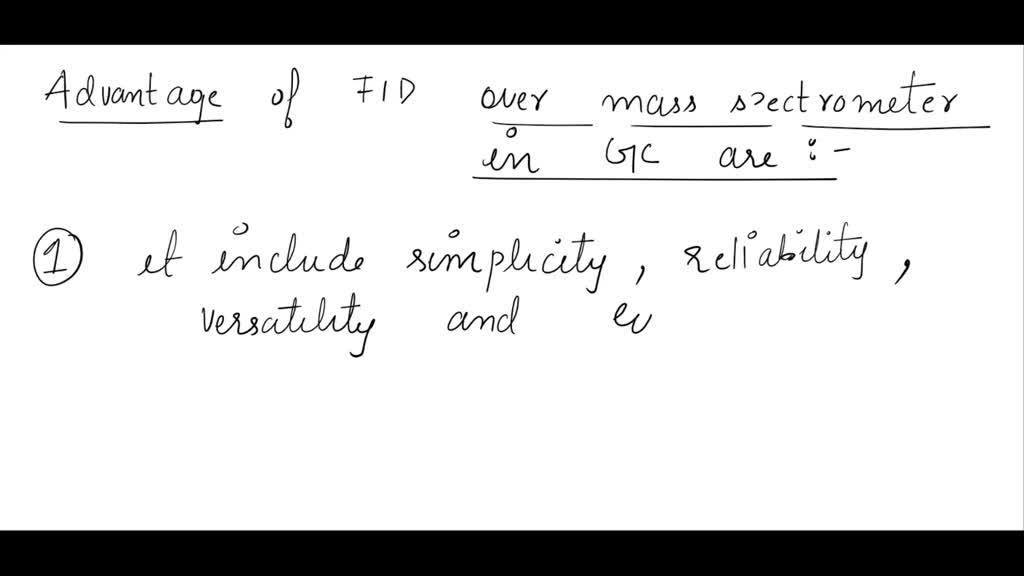 Advantage of FID over mass spectrometer
in GC are :-
① it include simplicity, reliability,
versatility and